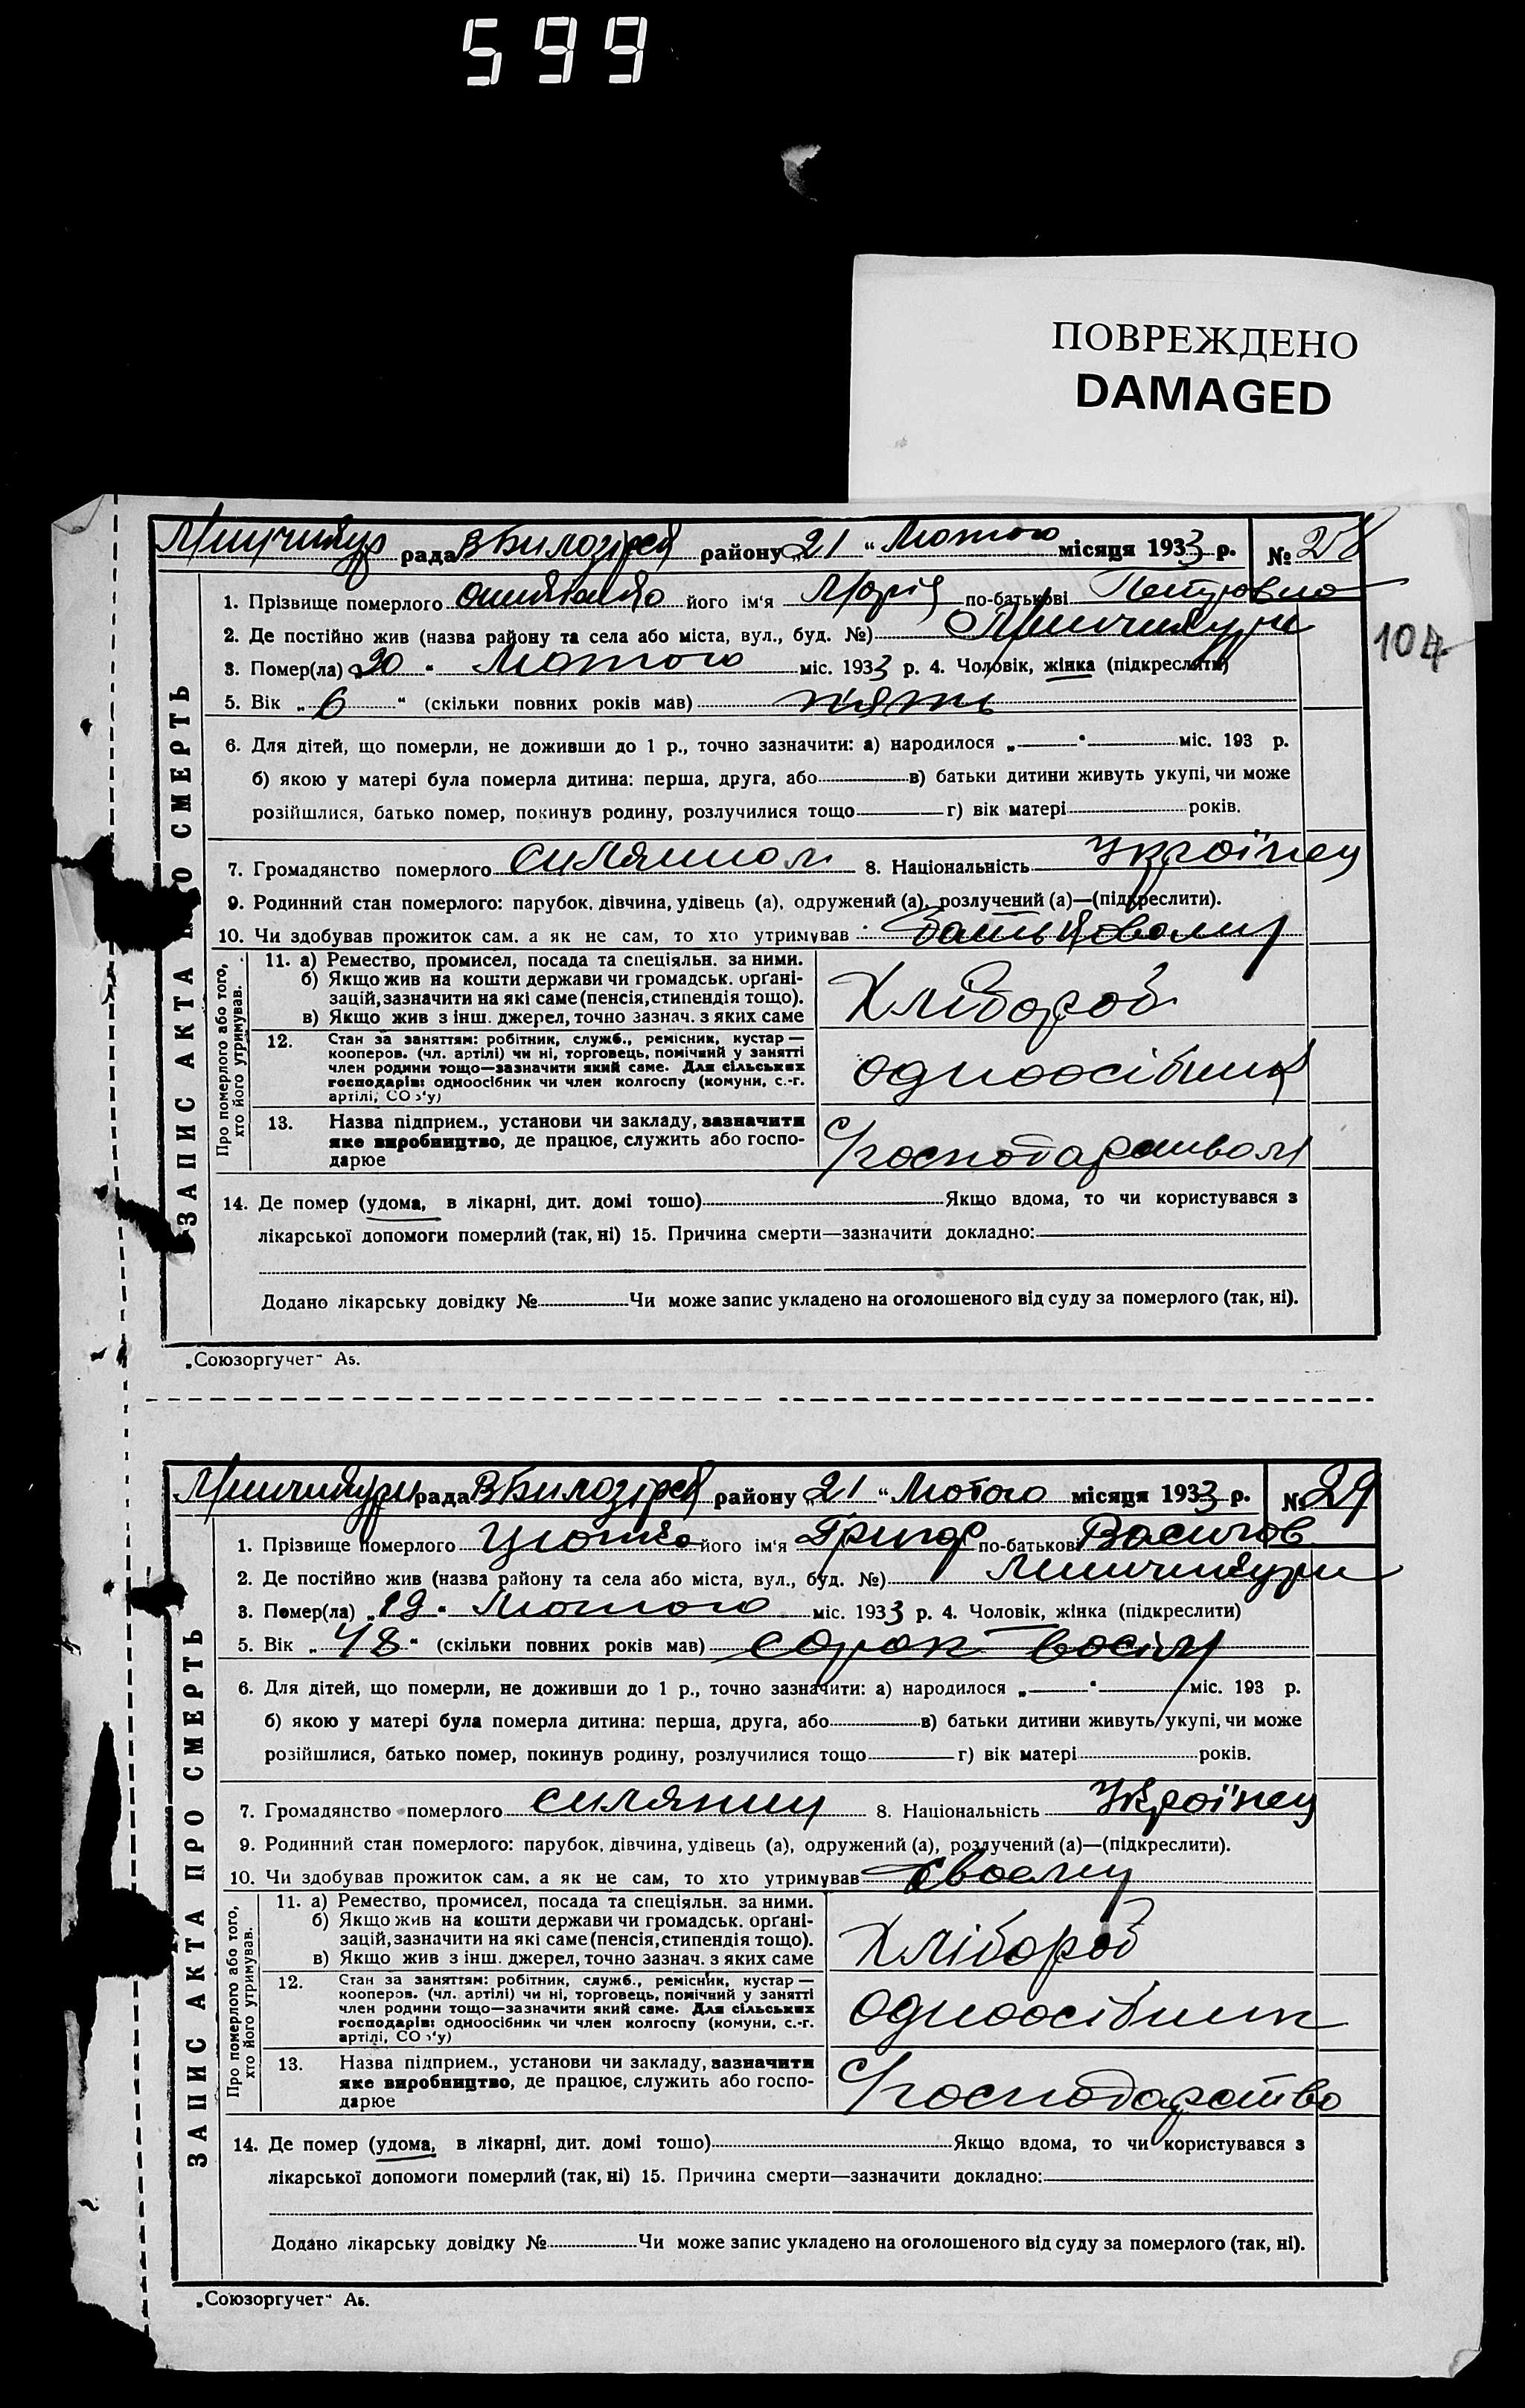 599
ПОВРЕЖДЕНО
DAMAGED
104
рада район у „21 “ Лютого місяця 1933 р. № 28
1. Прізвище померлого його ім‘я Марія по-батькові Петровна
2. Де постійно жив (назва району та села або міста, вул., буд. №)
3. Помер(ла) „20 “ Лютого міс. 1933 р. 4. Чоловік, жінка (підкреслити)
5. Вік „ 6 “ (скільки повних років мав) пять
6. Для дітей, що померли, не доживши до 1 р., точно зазначити: а) народилося „ “ міс. 193 р.
б) якою у матері була померла дитина: перша, друга, або в) батьки дитини живуть укупі, чи може
розійшлися, батько помер, покинув родину, розлучилися тощо г) вік матері років.
7. Громадянство померлого 8. Національність Українец
9. Родинний стан померлого: парубок, дівчина, удівець (а), одружений (а), розлучений (а)—(підкреслити).
10. Чи здобував прожиток сам, а як не сам, то хто утримував
Про померлого або того, хто його утримував.
11. а) Ремество, промисел, посада та спеціяльн. за ними.
б) Якщо жив на кошти держави чи громадськ. орґані-
зацій, зазначити на які саме (пенсія, стипендія тощо).
в) Якщо жив з інш. джерел, точно зазнач. з яких саме
Хлібороб
12. Стан за заняттям: робітник, служб., ремісник, кустар —
кооперов. (чл. артілі) чи ні, торговець, помічний у занятті
член родини тощо—зазначити який саме. Для сільських
господарів: одноосібник чи член колгоспу (комуни, с.-г.
артілі, СОЗ‘у)
одноосібник
13. Назва підприєм., установи чи закладу, зазначити
яке виробництво, де працює, служить або госпо-
дарює
14. Де помер (удома, в лікарні, дит. домі тошо) Якщо вдома, то чи користувався з
лікарської допомоги померлий (так, ні) 15. Причина смерти—зазначити докладно:
Додано лікарську довідку № Чи може запис укладено на оголошеного від суду за померлого (так, ні).
ЗАПИС АКТА ПРО СМЕРТЬ
„Союзоргучет“ А5.
рада район у „21 “ Лютого місяця 1933 р. № 29
1. Прізвище померлого його ім‘я Григор по-батькові Васильов
2. Де постійно жив (назва району та села або міста, вул., буд. №)
3. Помер(ла) „19 “ Лютого міс. 1933 р. 4. Чоловік, жінка (підкреслити)
5. Вік „ 48 “ (скільки повних років мав) сорок восім
6. Для дітей, що померли, не доживши до 1 р., точно зазначити: а) народилося „ “ міс. 193 р.
б) якою у матері була померла дитина: перша, друга, або в) батьки дитини живуть укупі, чи може
розійшлися, батько помер, покинув родину, розлучилися тощо г) вік матері років.
7. Громадянство померлого 8. Національність Українец
9. Родинний стан померлого: парубок, дівчина, удівець (а), одружений (а), розлучений (а)—(підкреслити).
10. Чи здобував прожиток сам, а як не сам, то хто утримував
Про померлого або того, хто його утримував.
11. а) Ремество, промисел, посада та спеціяльн. за ними.
б) Якщо жив на кошти держави чи громадськ. орґані-
зацій, зазначити на які саме (пенсія, стипендія тощо).
в) Якщо жив з інш. джерел, точно зазнач. з яких саме
Хлібороб
12. Стан за заняттям: робітник, служб., ремісник, кустар —
кооперов. (чл. артілі) чи ні, торговець, помічний у занятті
член родини тощо—зазначити який саме. Для сільських
господарів: одноосібник чи член колгоспу (комуни, с.-г.
артілі, СОЗ‘у)
одноосібник
13. Назва підприєм., установи чи закладу, зазначити
яке виробництво, де працює, служить або госпо-
дарює
Господарство
14. Де помер (удома, в лікарні, дит. домі тошо) Якщо вдома, то чи користувався з
лікарської допомоги померлий (так, ні) 15. Причина смерти—зазначити докладно:
Додано лікарську довідку № Чи може запис укладено на оголошеного від суду за померлого (так, ні).
ЗАПИС АКТА ПРО СМЕРТЬ
„Союзоргучет“ А5.